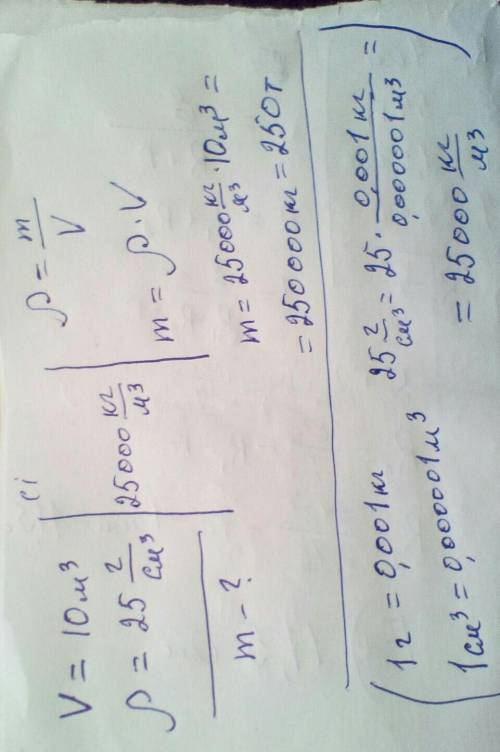 V = 10 м³
ρ = 25 г/см³
m - ?
сі
25000 кг/м³
ρ = m/V
m = ρ · V
m = 25000 кг/м³ · 10 м³ =
= 250000 кг = 250 т
1 г = 0,001 кг
1 см³ = 0,000001 м³
25 г/см³ = 25 · 0,001 кг/0,000001 м³ =
= 25000 кг/м³